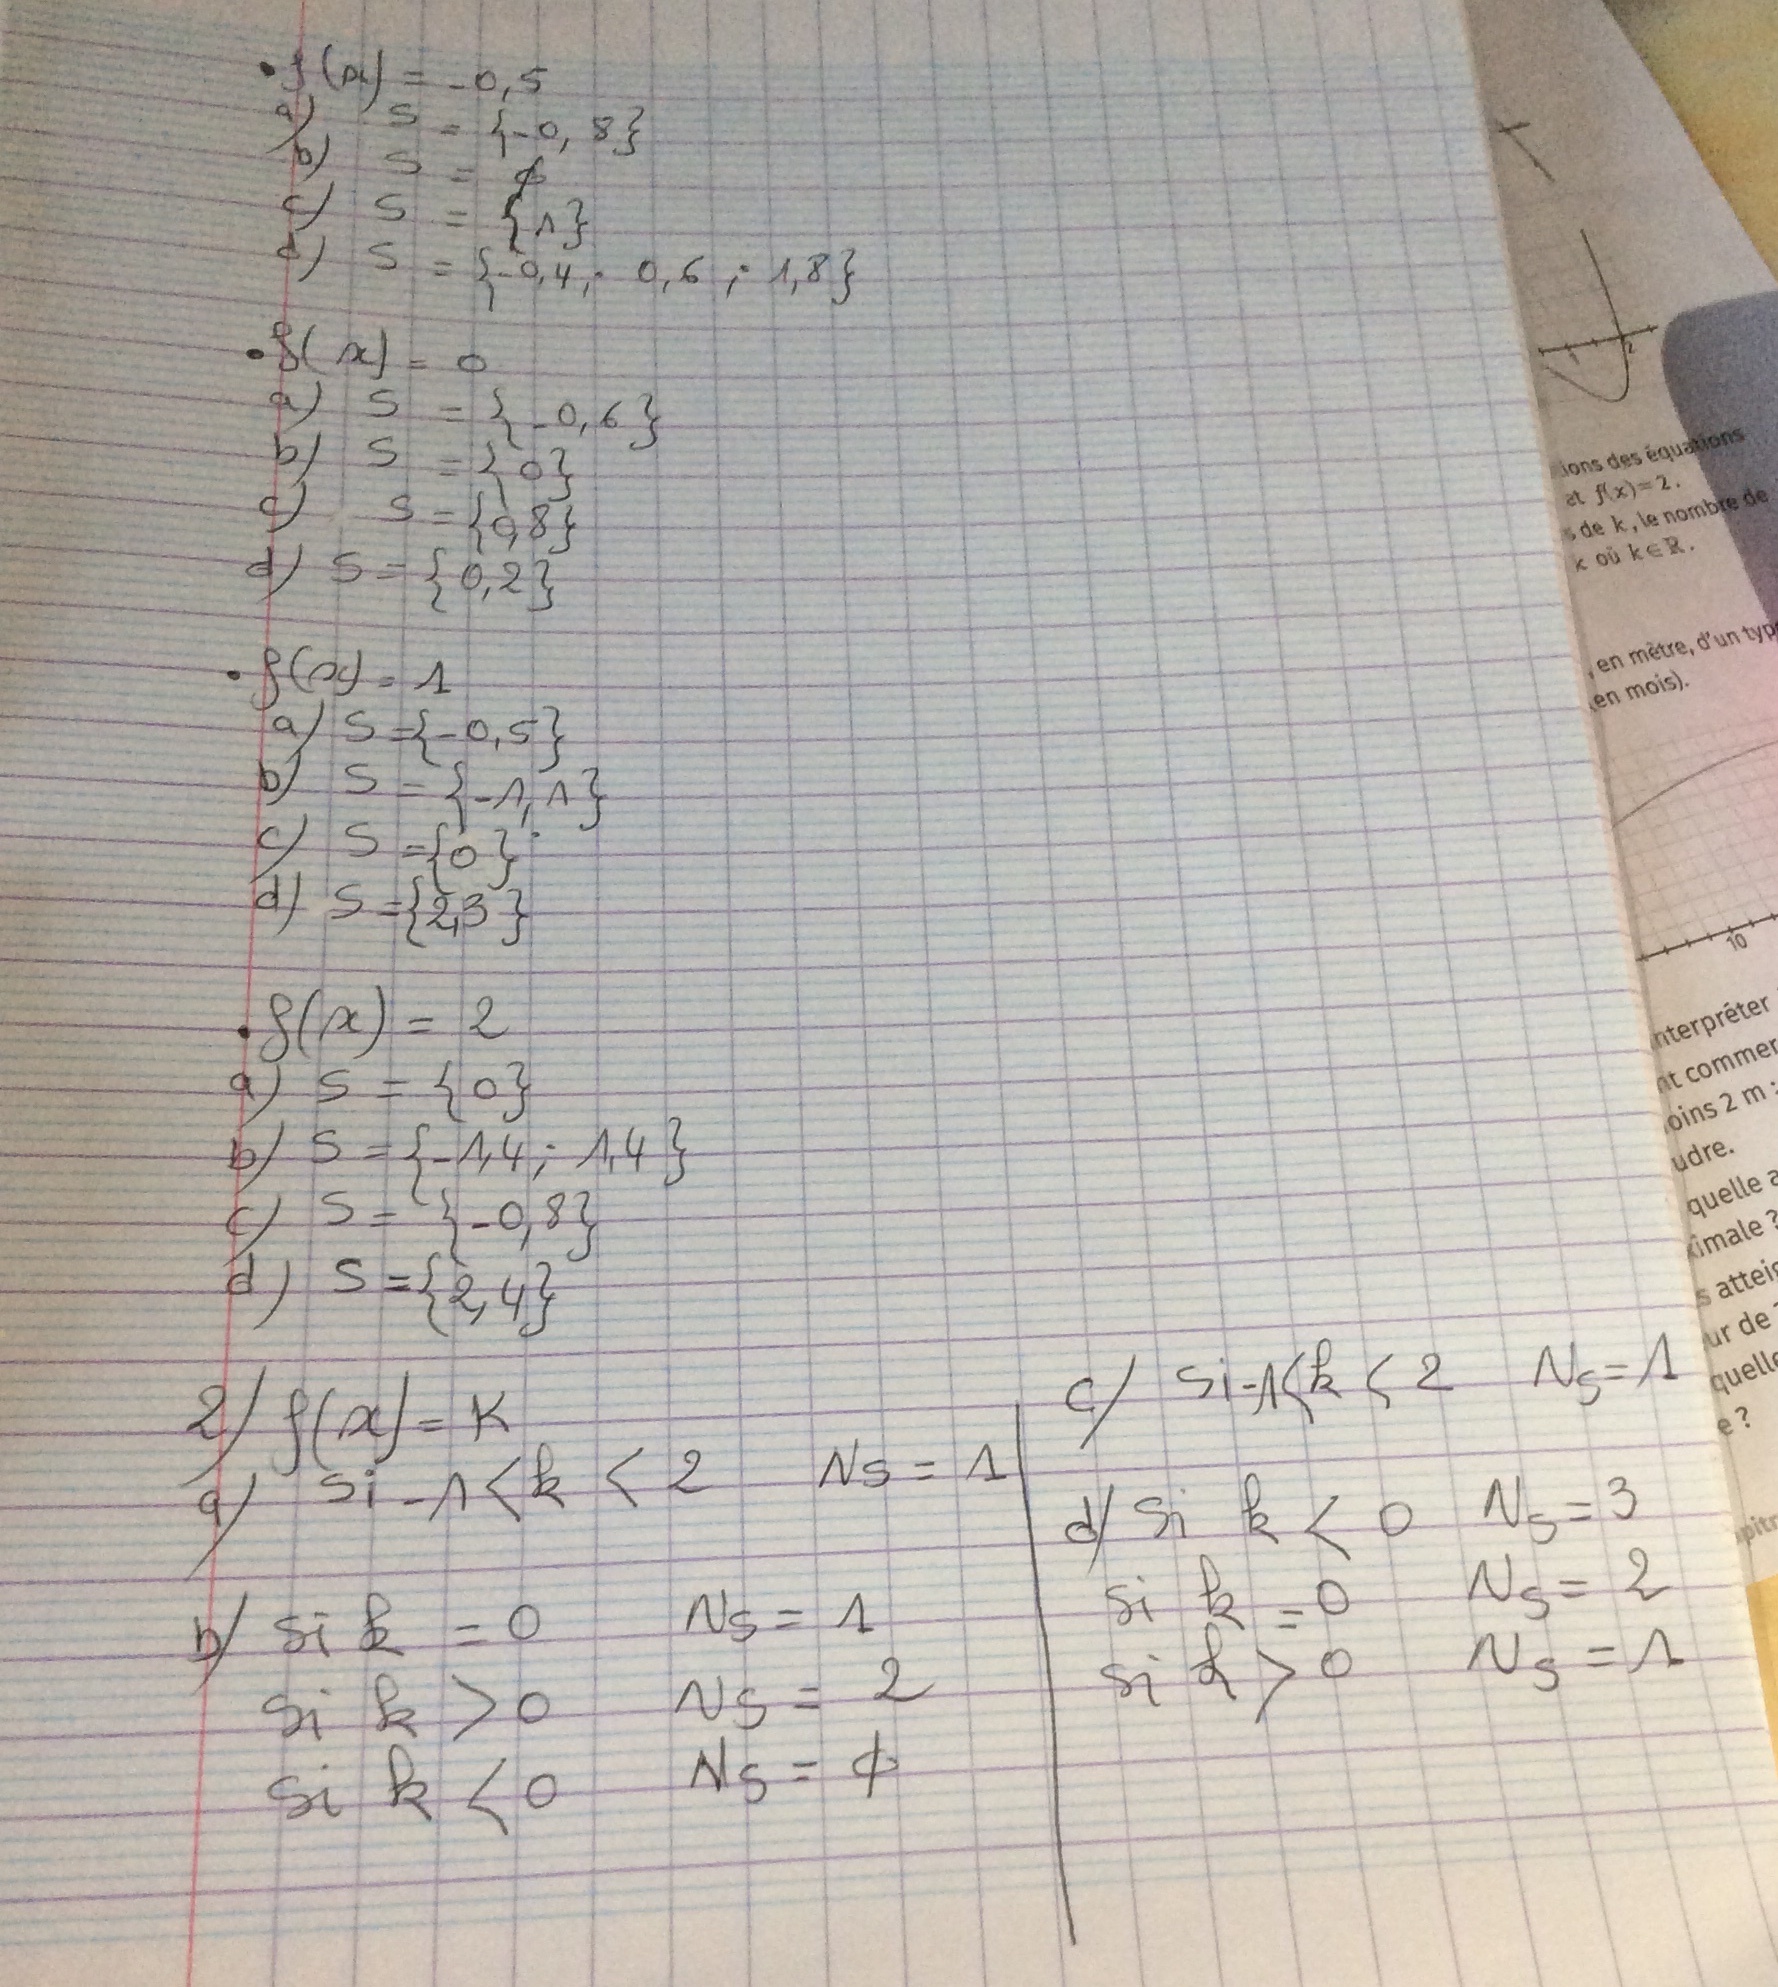 • f(x) = -0,5
a) S = {-0,8}
b) S = ∅
c) S = {1}
d) S = {-0,4 ; 0,6 ; 1,8}
• f(x) = 0
a) S = {-0,6}
b) S = {0}
c) S = {0,8}
d) S = {0,2}
• f(x) = 1
a) S = {-0,5}
b) S = {-1, 1}
c) S = {0}
d) S = {2,3}
• f(x) = 2
a) S = {0}
b) S = {-1,4 ; 1,4}
c) S = {-0,8}
d) S = {2,4}
2) f(x) = K
a) Si -1 < k < 2 Ns = 1
b) si k = 0 Ns = 1
si k > 0 Ns = 2
si k < 0 Ns = ϕ
c) Si -1 < k < 2 Ns = 1
d) Si k < 0 Ns = 3
si k = 0 Ns = 2
si k > 0 Ns = 1
2
ions des équations
et f(x)=2.
s de k, le nombre de
k où k∈ℝ.
, en mètre, d'un type
(en mois).
10
nterpréter
nt commen
oins 2 m :
udre.
quelle a
ximale ?
s atteig
ur de
quelle
e ?
pitr